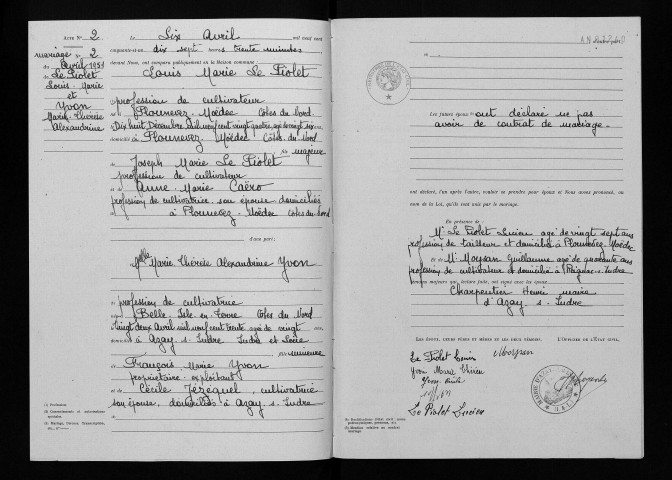 ACTE N° 2
mariage N° 2
du
Avril 1951
Le Piolet
Louis-Marie
et
Yvon
Marie-Thérèse
Alexandrine
Le Six Avril mil neuf cent
cinquante-et-un dix sept heures trente minutes
devant Nous, ont comparu publiquement en la Maison commune :
Louis Marie Le Piolet
profession de cultivateur
Plounevez-Moëdec Côtes du Nord
Dix huit Décembre mil neuf cent vingt quatre, agé de vingt six ans
domicilié à Plounevez-Moëdec Côtes du Nord
fils majeur
Joseph Marie Le Piolet
profession de cultivateur
et de Anne-Marie Caëro
profession de cultivatrice, son épouse domiciliés
à Plounevez-Moëdec Côtes du Nord
d'une part ;
Melle Marie-Thérèse Alexandrine Yvon
profession de cultivatrice
Belle-Isle-en-Terre Côtes du Nord
Vingt deux Avril mil neuf cent trente agée de vingt ans
domiciliée à Azay-s-Indre Indre et Loire
fille mineure
François Marie Yvon
propriétaire-exploitant
et de Cécile Jézéquel, cultivatrice
son épouse, domiciliés à Azay-s-Indre
(1) Profession.
Les futurs époux ont déclaré ne pas
avoir de contrat de mariage.
ont déclaré, l'un après l'autre, vouloir se prendre pour époux et Nous avons prononcé, au
nom de la Loi, qu'ils sont unis par le mariage.
En présence de :
Mr Le Piolet Lucien agé de vingt sept ans
profession de tailleur et domicilié à Plounevez-Moëdec
Et de Mr Moysan Guillaume agé de quarante ans
profession de cultivateur et domicilié à Reignac-s-Indre
témoins majeurs qui, lecture faite, ont signé avec les époux
Charpentier Henri maire
d'Azay-s-Indre
LES ÉPOUX, LEURS PÈRES ET MÈRES ET LES DEUX TÉMOINS, L'OFFICIER DE L'ÉTAT CIVIL,
Le Piolet Louis Moysan
Yvon Marie Thérèse
Yvon Cécile
Yvon
Le Piolet Lucien